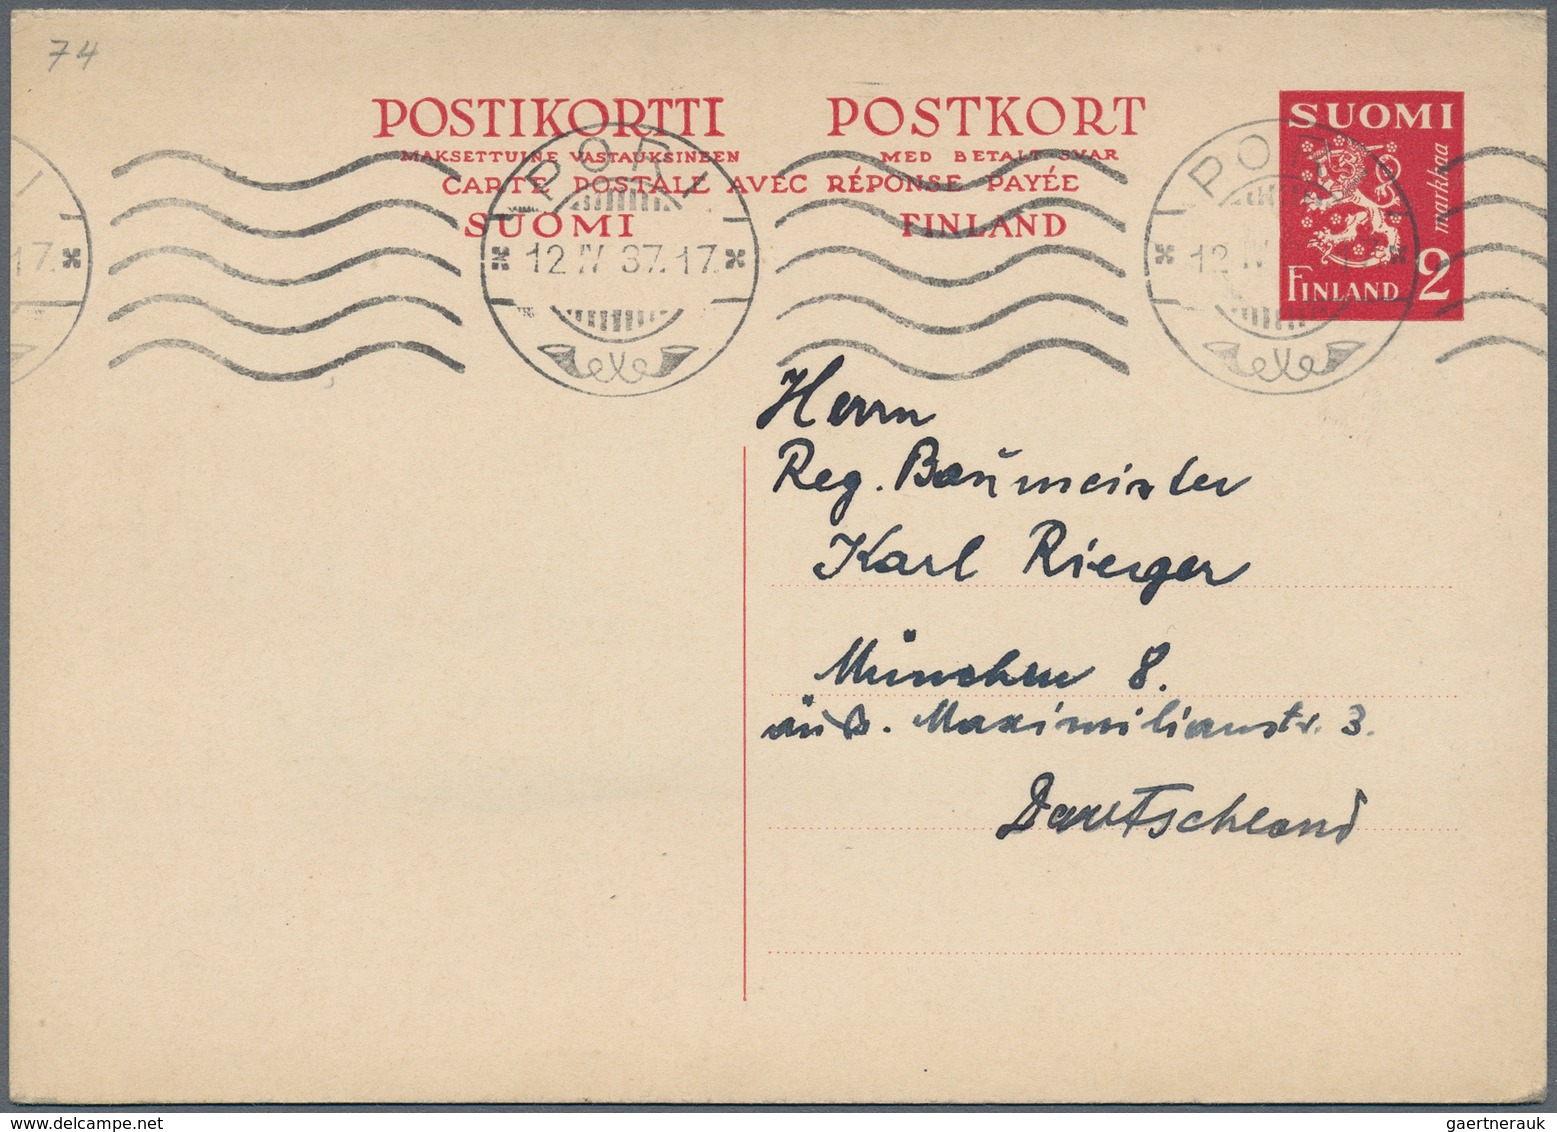 74
POSTIKORTTI POSTKORT
MAKSETTUINE VASTAUKSINEEN MED BETALT SVAR
CARTE POSTALE AVEC RÉPONSE PAYÉE
SUOMI FINLAND
SUOMI
markkaa
FINLAND 2
PORI
12 IV 37.17.
PORI
12 IV
17.
Herrn
Reg. Baumeister
Karl Rieger
München 8.
äuß. Maximilianstr. 3.
Deutschland
delcampe.net
gaertnerauk